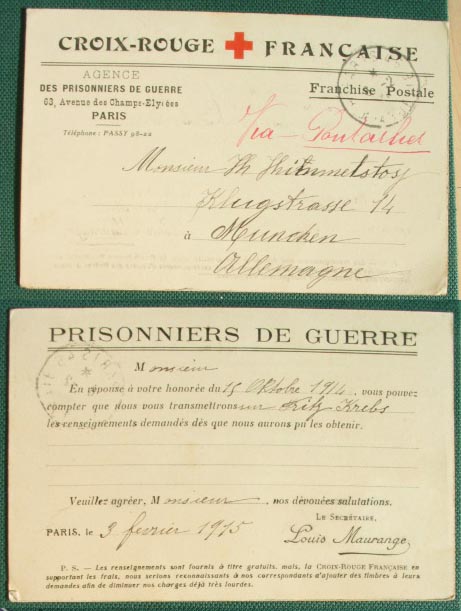 CROIX-ROUGE FRANÇAISE
AGENCE
DES PRISONNIERS DE GUERRE
63, Avenue des Champs-Elysées
PARIS
Téléphone : PASSY 98-22
Franchise Postale
Via Pontarlier
Monsieur Th
Klugstrasse 14
à München
Allemagne
PRISONNIERS DE GUERRE
Monsieur
En réponse à votre honorée du 15 Oktobre 1914, vous pouvez
compter que nous vous transmettrons sur Fritz Krebs
les renseignements demandés dès que nous aurons pu les obtenir.
Veuillez agréer, Monsieur, nos dévouées salutations.
LE SECRÉTAIRE,
PARIS, le 3 fevrier 1915
Louis Maurange
P. S. — Les renseignements sont fournis à titre gratuit, mais, la CROIX-ROUGE FRANÇAISE en
supportant les frais, nous serions reconnaissants à nos correspondants d'ajouter des timbres à leurs
demandes afin de diminuer nos charges déjà très lourdes.